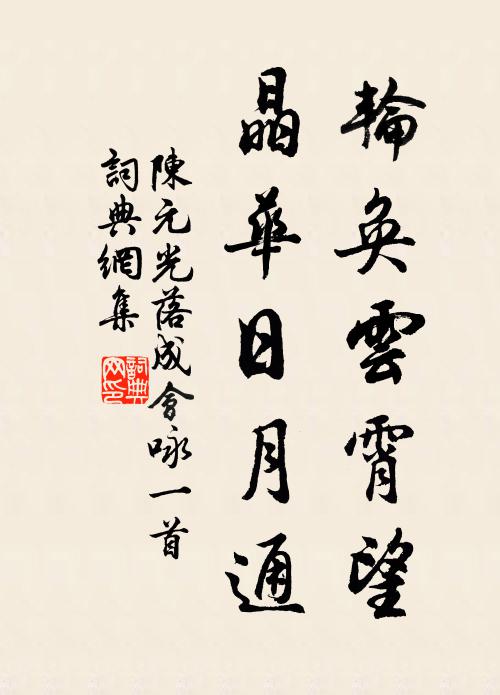 輪奐雲霄望
晶華日月通
陳元光落成會咏一首
詞典網集
詞典网印